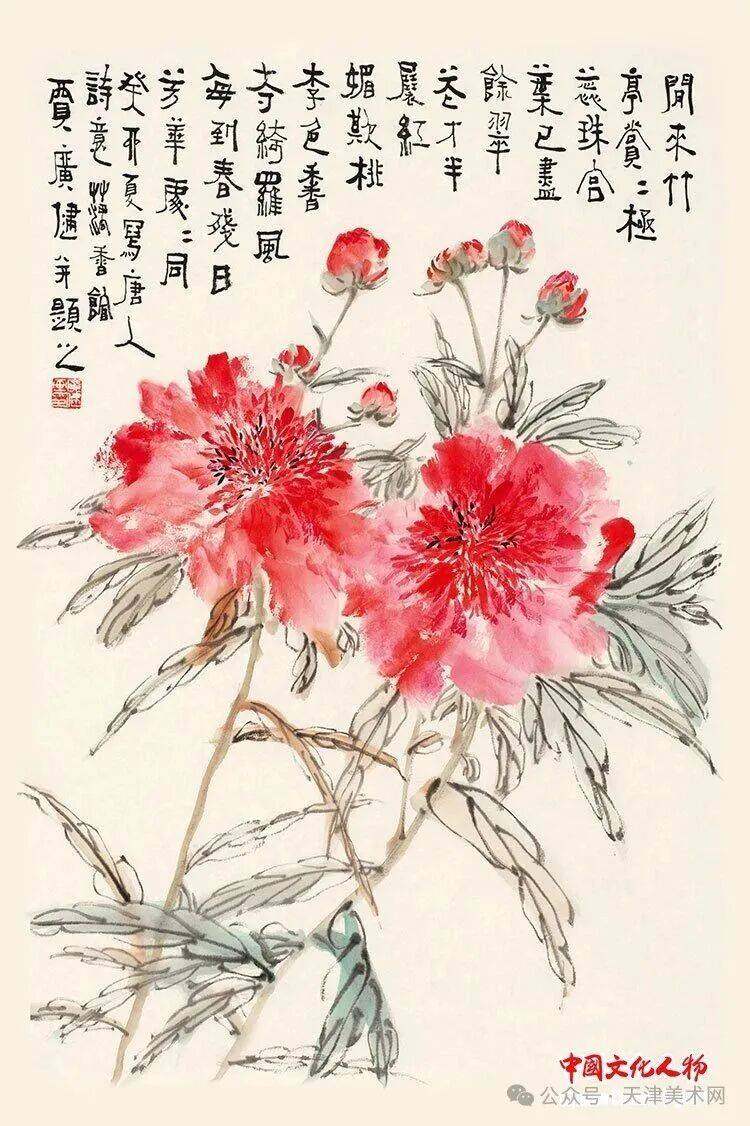 閒來竹
亭賞〻極
蕊珠宮
葉已盡
餘翠
花才半
展紅
媚欺桃
李色香
奪綺羅風
每到春殘日
芳華處〻同
癸卯夏寫唐人
詩意藕香館
賈廣健并題之
中国文化人物
公众号·天津美术网